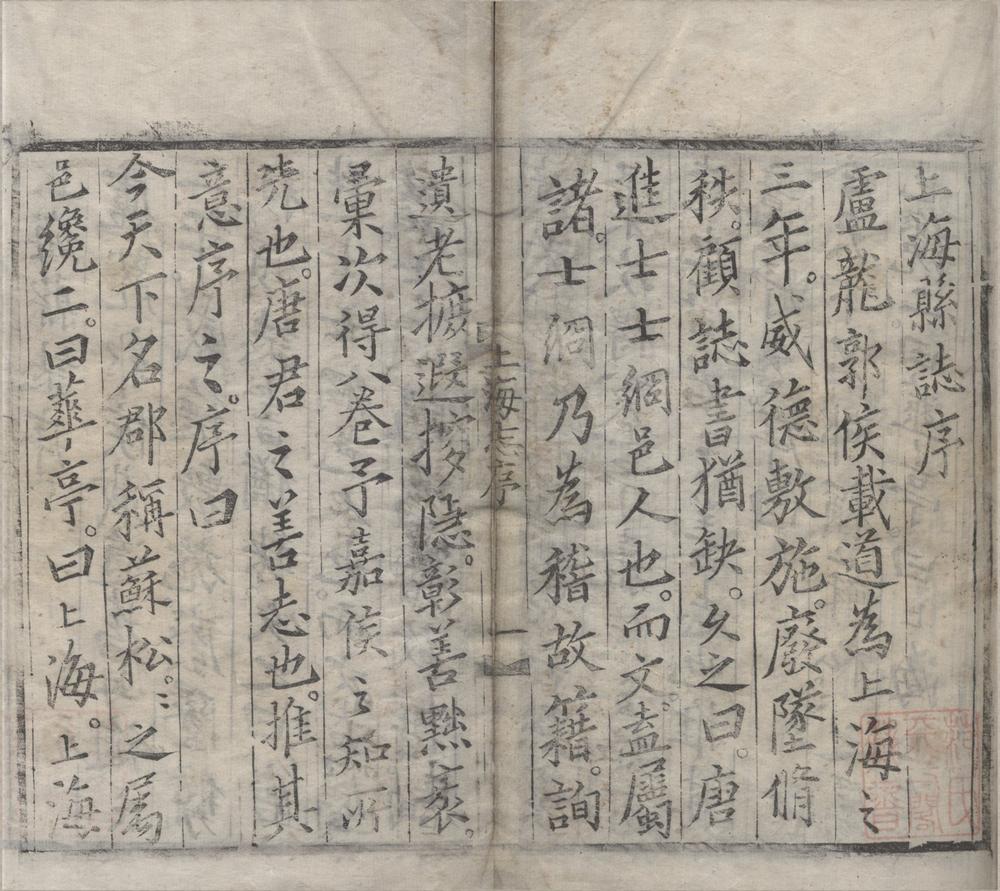 上海縣誌序
盧龍郭侯載道為上海之
三年。威德敷施。廢墜脩
秩。顧誌書猶缺。久之曰。唐
進士士綱邑人也。而文。盍屬
諸。士綱乃為稽故籍。詢
上海志序
一
遺老摭遐撏隱。彰善黜袤。
彙次得八卷予嘉侯之知所
先也。唐君之善志也。推其
意序之。序曰
今天下名郡稱蘇松。〻之属
邑纔二。曰華亭。曰上海。上海